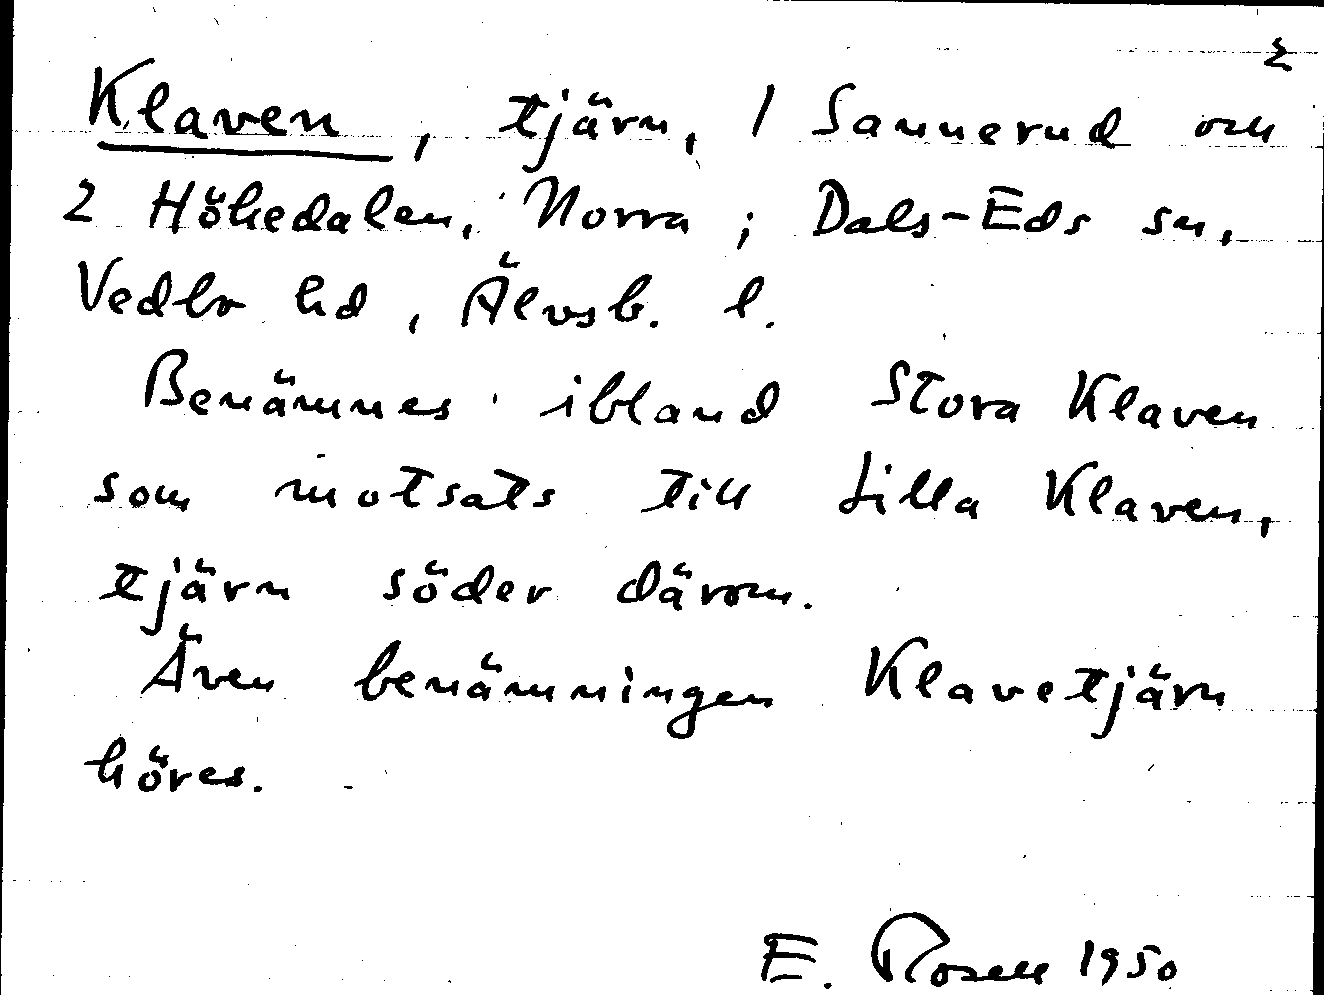 2
Klaven, tjärn, 1 Sannerud och
2 Hökedalen, Norra; Dals-Eds sn,
Vedbo hd, Älvsb. l.
Benämnes ibland Stora Klaven
som motsats till Lilla Klaven,
tjärn söder därom.
Även benämningen Klavetjärn
höres.
E. Rosell 1950